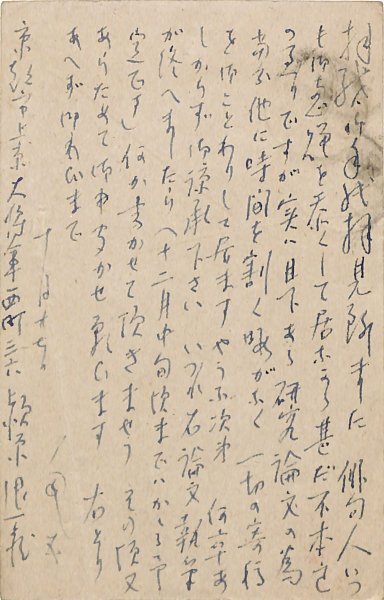 拝啓 御手紙拝見致しました 俳句人いつ
も御恵贈を忝くして居ながら甚だ不本意
の至りですが実は目下ある研究論文の為
当分他に時間を割く暇がなく 一切の寄稿
をおことわりして居ますやうな次第 何卒あ
しからず御諒承下さい いづれ右論文執筆
が終へましたら(十二月中旬頃までかかる予
定です)何か書かせて頂きませう その頃又
あらためて御申きかせ願ひます 右とり
あへず御わびまで
十月十七日
京都市上京大将軍西町二六 頴原退蔵